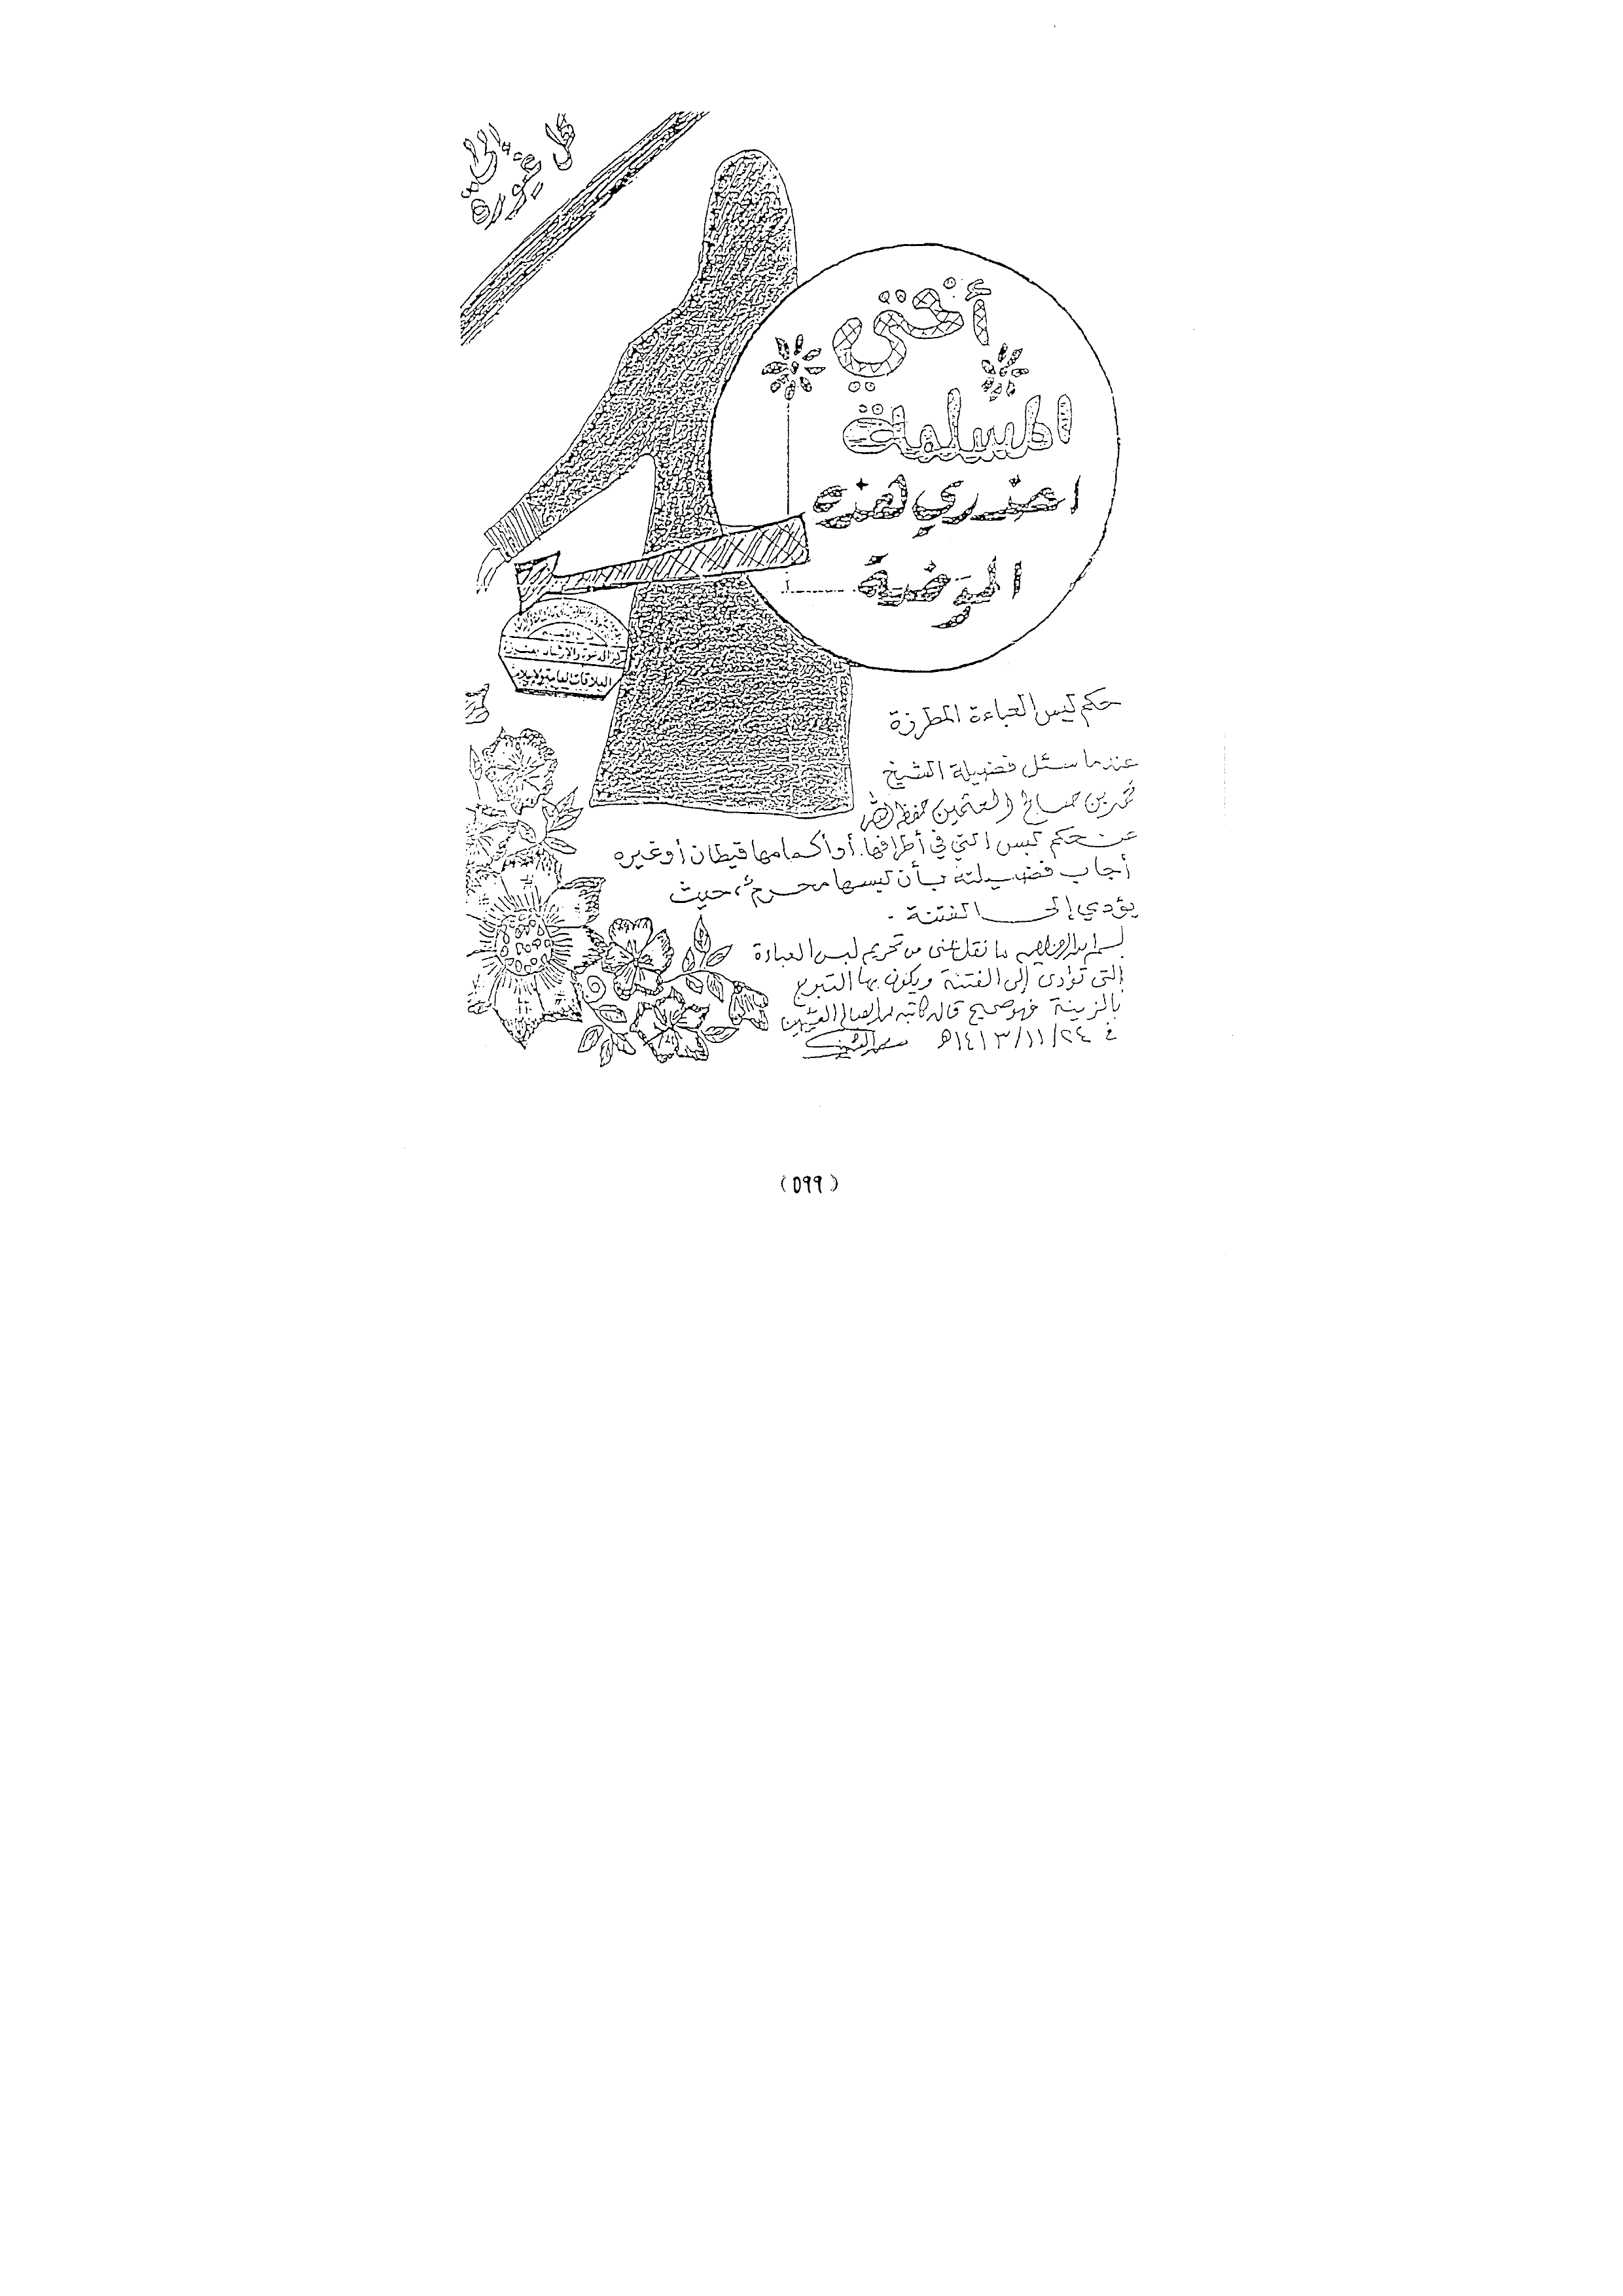 أختي
المسلمة
احذري هذه
الموضة
مركز الدعوة والإرشاد بعنيزة
حكم لبس العباءة المطرزة
عندما سئل فضيلة الشيخ
محمد بن صالح العثيمين حفظه الله
عن حكم لبس التي في أطرافها أو أكمامها قيطان أو غيره
أجاب فضيلته بأن لبسها محرم، حيث
يؤدي إلى الفتنة.
بسم الله الرحمن الرحيم ما نقل عني من تحريم لبس العباءة
التي تؤدى إلى الفتنة ويكون بها التبرج
بالزينة فهو صحيح قاله كاتبه محمد الصالح العثيمين
في ٢٤/١١/١٤١٣هـ
(٥٩٩)